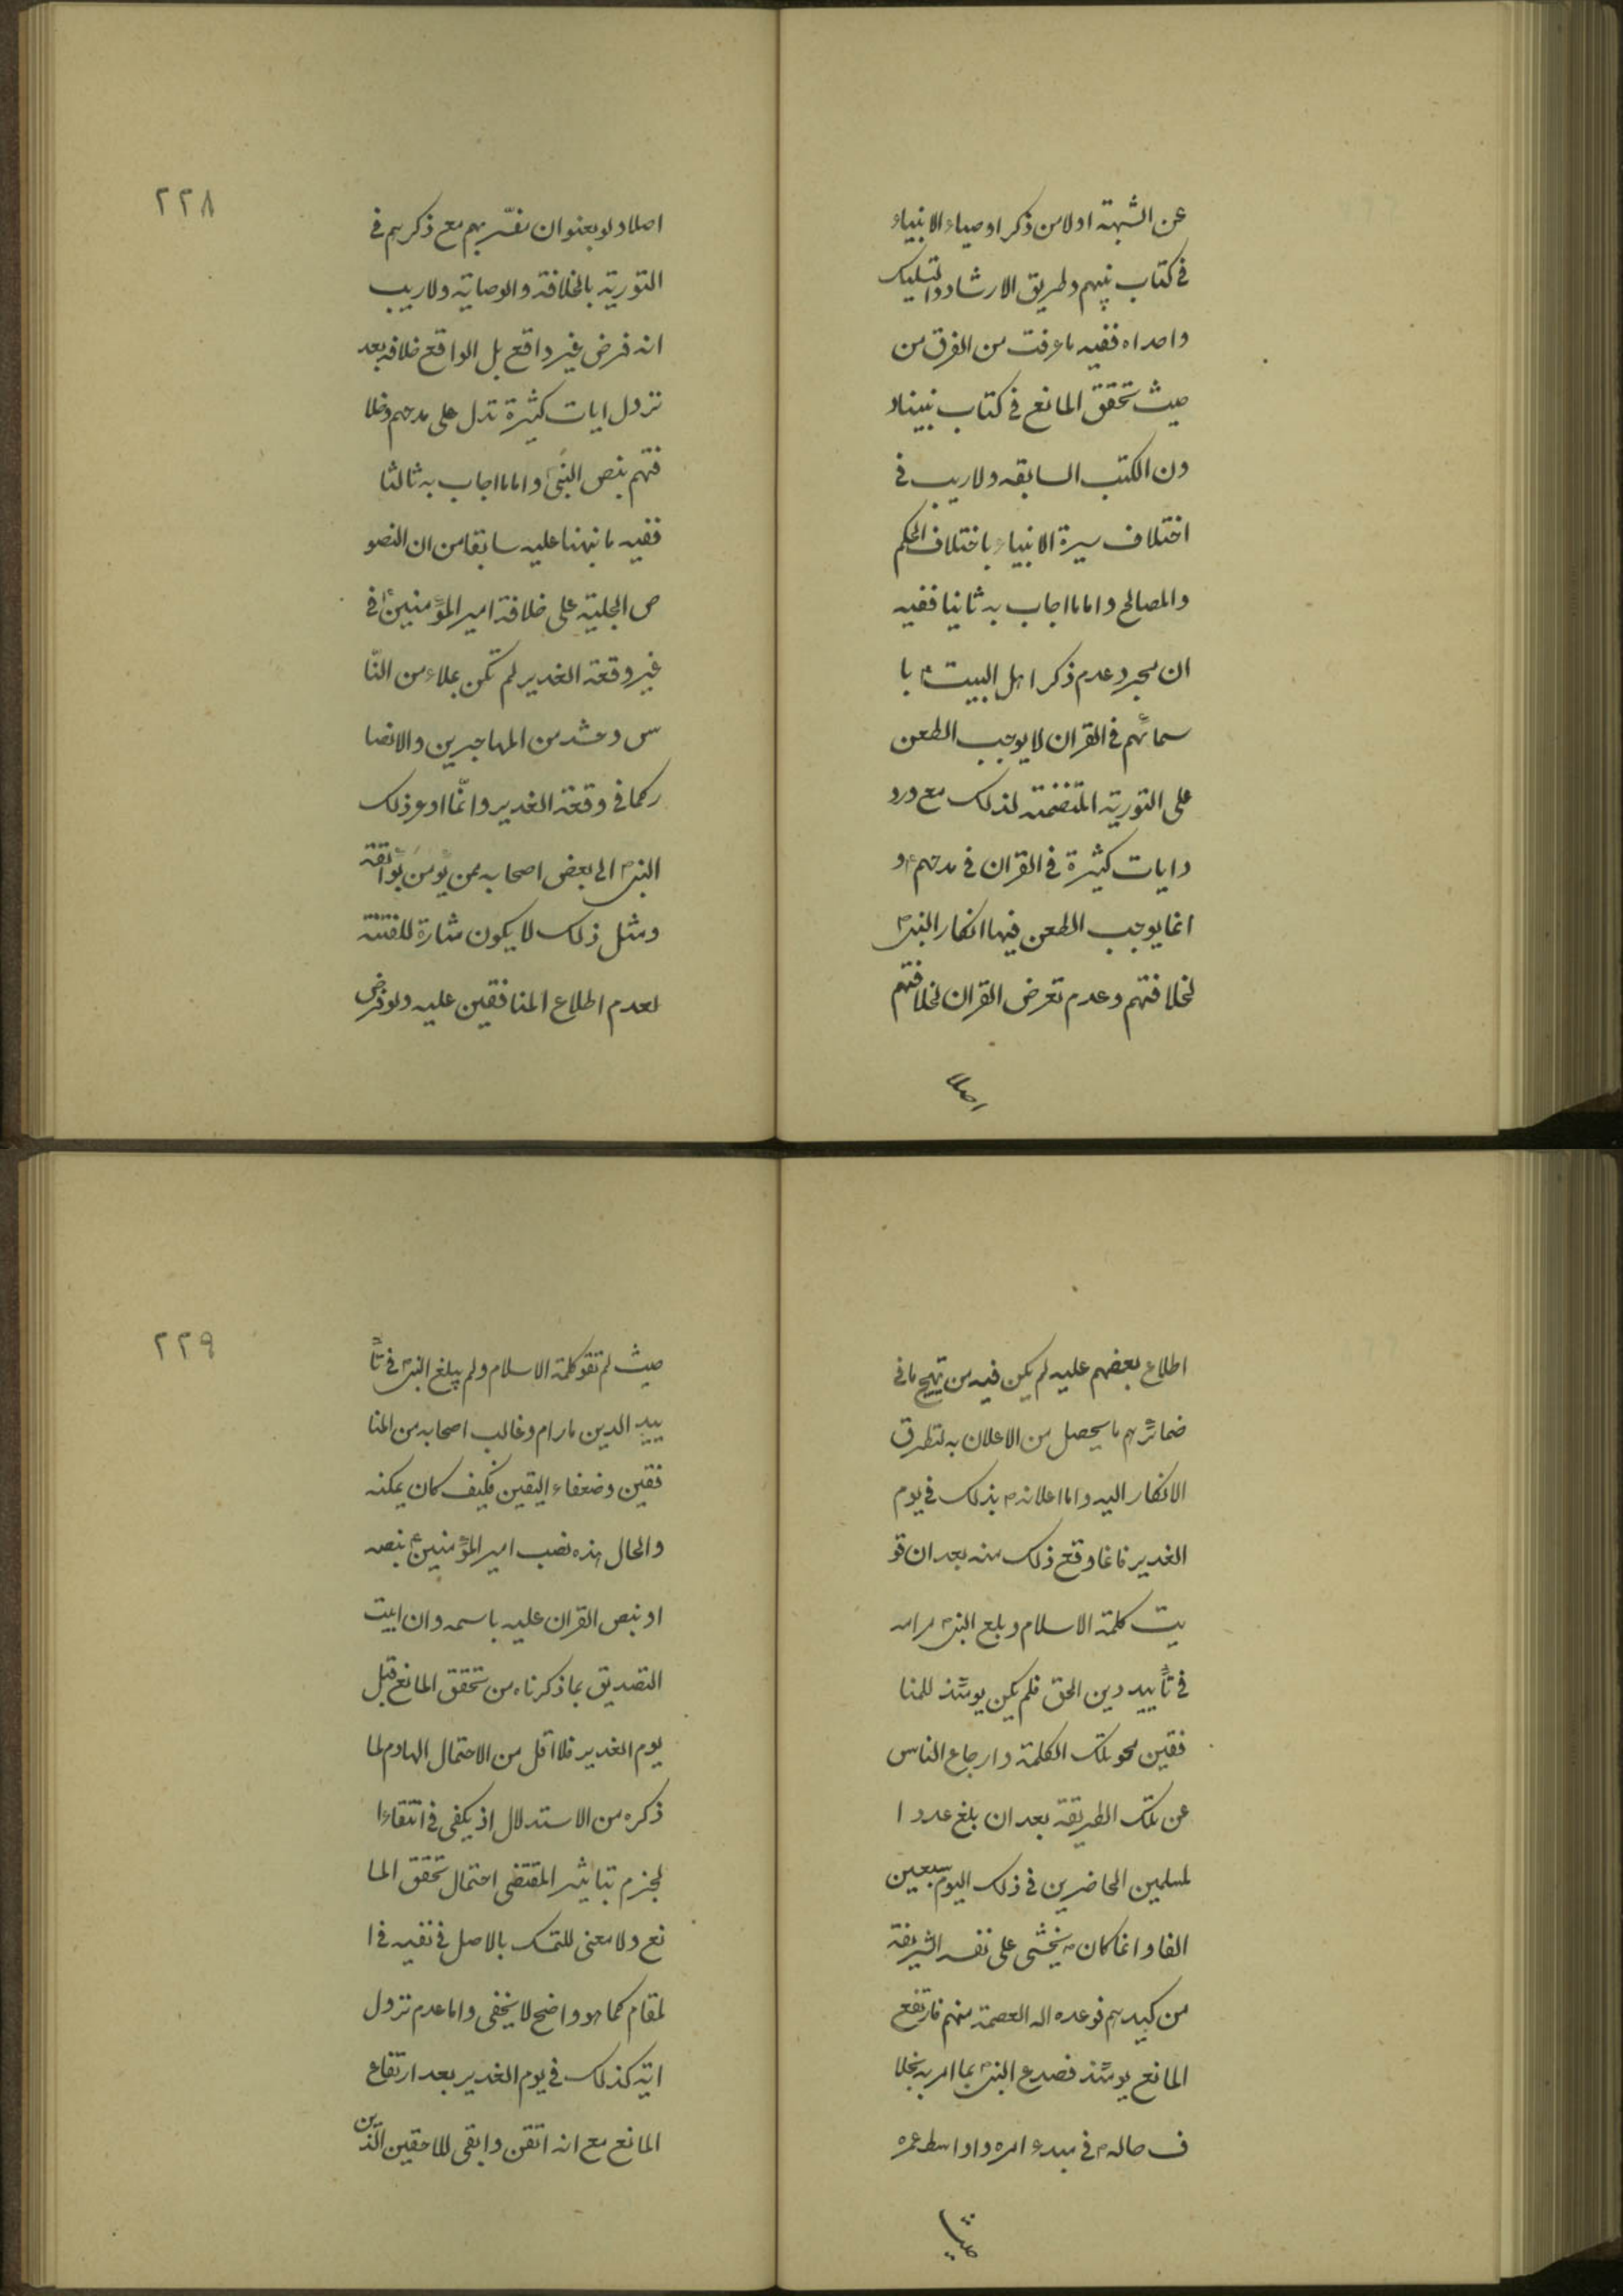 عن الشبهة اولا من ذكر اوصياء الانبياء
فى كتاب نبيهم وطريق الارشاد والتسليك
واحداه ففيه ما عرفت من الفرق من
حيث تحقق المانع فى كتاب نبينا د
ون الكتب السابقه ولا ريب فى
اختلاف سيرة الانبياء باختلاف الحكم
والمصالح واما ما اجاب به ثانيا ففيه
ان مجرد عدم ذكر اهل البيت ع با
سمائهم فى القران لا يوجب الطعن
على التورية المتضمنه لذلك مع ورو
د ايات كثيرة فى القران فى مدحهم ع و
انما يوجب الطعن فيها انكار النبى ص
لخلافتهم وعدم تعرض القران لخلافتهم
اصلا
٢٢٨
اصلا ولو بعنوان نفسّر بهم مع ذكرهم فى
التورية بالخلافة والوصاية ولا ريب
انه فرض غير واقع بل الواقع خلافه بعد
نزول ايات كثيرة تدل على مدحهم وخلا
فتهم بنص النبى ص واما ما اجاب به ثالثا
ففيه ما نبهنا عليه سابقا من ان النصو
ص الجلية على خلافة امير المؤمنين ع فى
غير وقعة الغدير لم تكن بملاء من النّا
س وحشد من المهاجرين والانصا
ر كما فى وقعة الغدير وانّما اودع ذلك
النبى ص الى بعض اصحابه ممن يؤمن بوائقه
ومثل ذلك لا يكون مثارة للفتنة
لعدم اطلاع المنافقين عليه ولو فرض
اطلاع بعضهم عليه لم يكن فيه من تهيج ما فى
ضمائرهم ما يحصل من الاعلان به لتطرق
الانكار اليه واما اعلانه ص بذلك فى يوم
الغدير فانما وقع ذلك منه بعد ان قو
يت كلمة الاسلام وبلغ النبى ص مرامه
فى تأييد دين الحق فلم يكن يومئذ للمنا
فقين محو تلك الكلمة وارجاع الناس
عن تلك الطريقة بعد ان بلغ عدد ا
لمسلمين الحاضرين فى ذلك اليوم سبعين
الفا وانما كان ص يخشى على نفسه الشريفة
من كيدهم فوعده الله العصمة منهم فارتفع
المانع يومئذ فصدع النبى ص بما امر به بخلا
ف حاله ص فى مبدء امره واواسط عمره
حيث
٢٢٩
حيث لم تقو كلمة الاسلام ولم يبلغ النبى ص فى تأ
ييد الدين ما رام وغالب اصحابه من المنا
فقين وضعفاء اليقين فكيف كان يمكنه
والحال هذه نصب امير المؤمنين ع بنصه
او بنص القران عليه باسمه وان ابيت
التصديق بما ذكرناه من تحقق المانع قبل
يوم الغدير فلا اقل من الاحتمال الهادم لما
ذكره من الاستدلال اذ يكفى فى انتفاء ا
لجزم بتاثير المقتضى احتمال تحقق الما
نع ولا معنى للتمسك بالاصل فى نفيه فى ا
لمقام كما هو واضح لا يخفى واما عدم نزول
اية كذلك فى يوم الغدير بعد ارتفاع
المانع مع انه اتقن وابقى للاحقين الذين